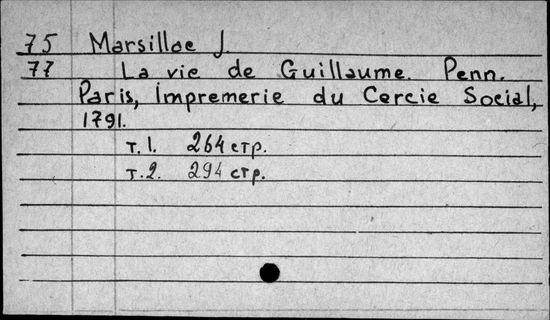 75 Marsillae J.
77 La vie de Guillaume. Penn.
Paris, Impremerie du Cercie Social,
1791.
т. 1. 264 стр.
т. 2. 294 стр.